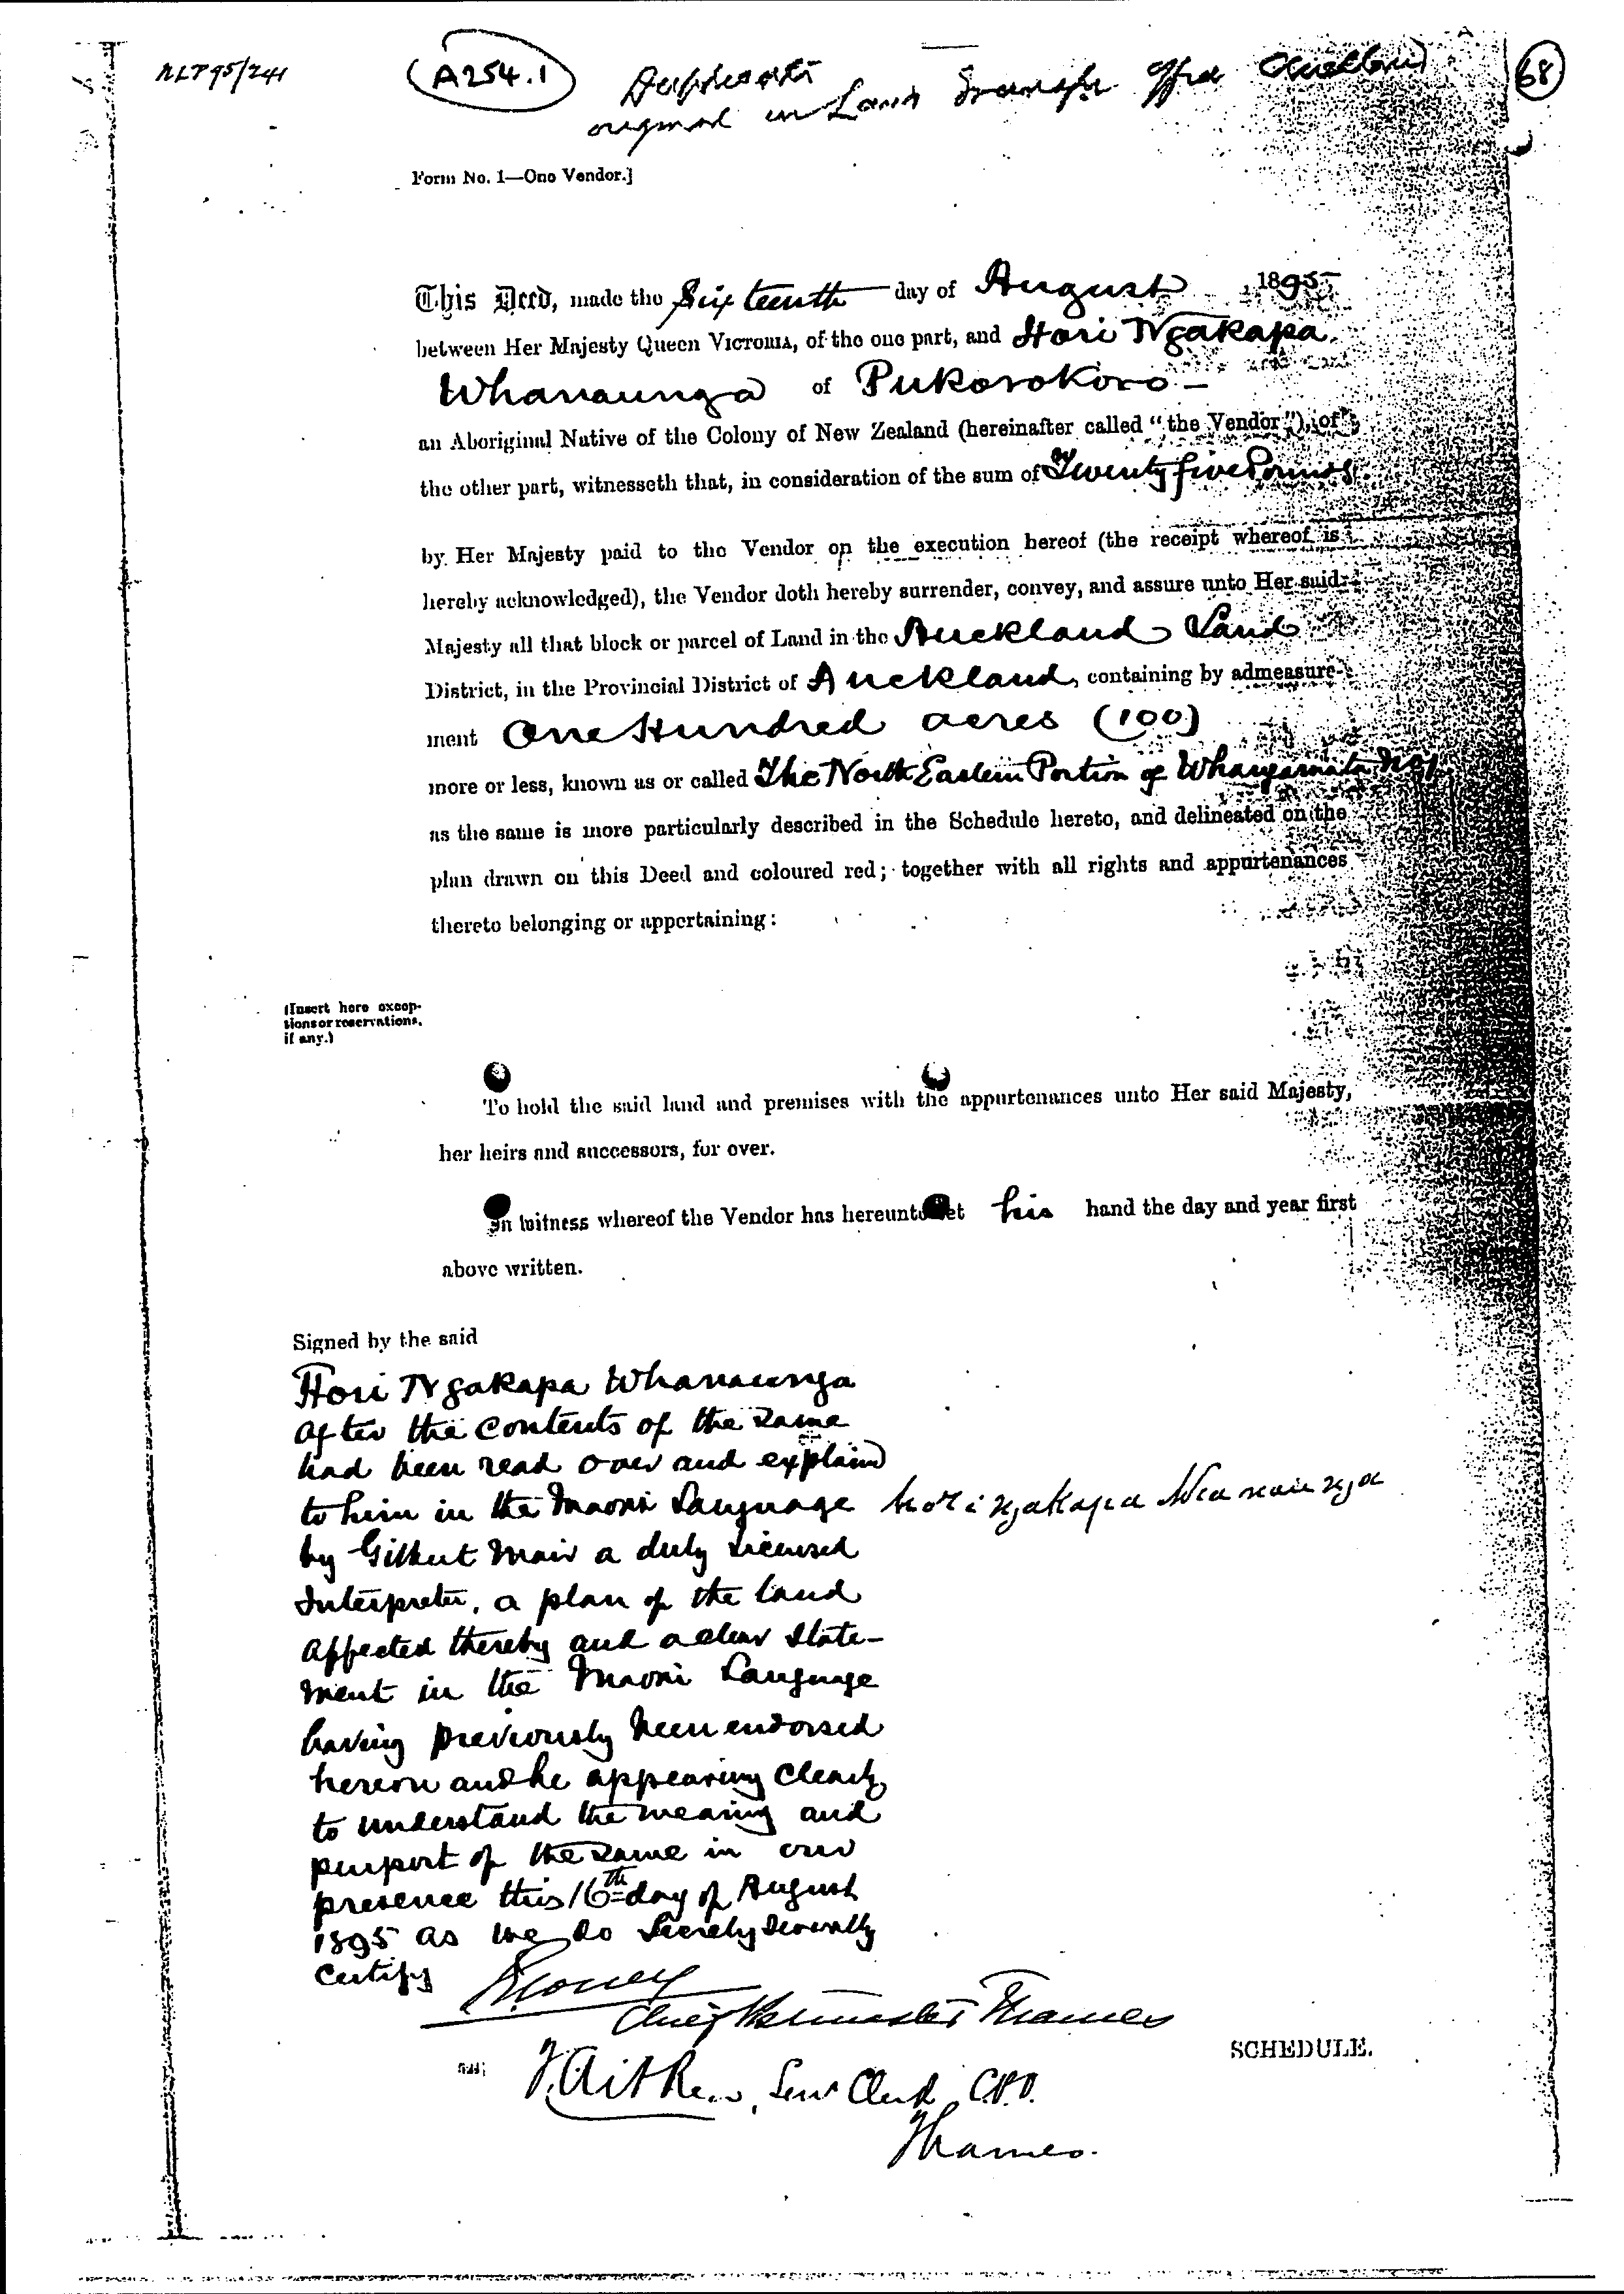 NLP 95/241
A254.1
Duplicate
original in Land Transfer Office Auckland
68
Form No. 1—One Vendor.]
This Deed, made the Sixteenth day of August 1895
between Her Majesty Queen VICTORIA, of the one part, and Hori Ngakapa
Whanaunga of Pukorokoro —
an Aboriginal Native of the Colony of New Zealand (hereinafter called "the Vendor"), of
the other part, witnesseth that, in consideration of the sum of Twenty five Pounds
by Her Majesty paid to the Vendor on the execution hereof (the receipt whereof is
hereby acknowledged), the Vendor doth hereby surrender, convey, and assure unto Her said
Majesty all that block or parcel of Land in the Auckland Land
District, in the Provincial District of Auckland, containing by admeasure-
ment One Hundred acres (100)
more or less, known as or called The North Eastern Portion of Whangamata No 1
as the same is more particularly described in the Schedule hereto, and delineated on the
plan drawn on this Deed and coloured red; together with all rights and appurtenances
thereto belonging or appertaining:
(Insert here excep-
tions or reservations,
if any.)
To hold the said land and premises with the appurtenances unto Her said Majesty,
her heirs and successors, for ever.
In witness whereof the Vendor has hereunto set his hand the day and year first
above written.
Signed by the said
Hori Ngakapa Whanaunga
after the contents of the same
had been read over and explain
to him in the Maori Language
hori ngakapa Wananunga
by Gilbert Mair a duly Licensed
Interpreter, a plan of the land
affected thereby and a clear state-
ment in the Maori Language
having previously been endorsed
hereon and he appearing clearly
to understand the meaning and
purport of the same in our
presence this 16th day of August
1895 as we do severally
certify
Chief Postmaster Thames
J. Aitken, Senr Clerk, C.P.O.
Thames.
SCHEDULE.